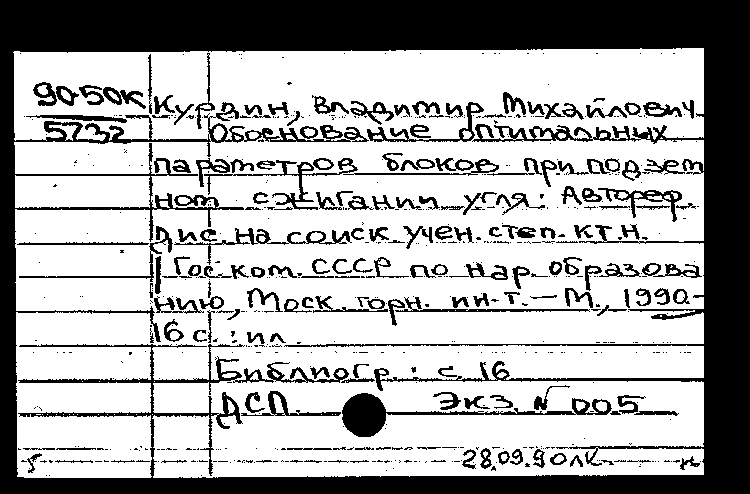 90-50к Курдин, Владимир Михайлович
5732 Обоснование оптимальных
параметров блоков при подзем
ном сжигании угля: Автореф.
Дис. на соиск. учен. степ. к.т.н.
|Гос. ком. СССР по нар. образова
нию, Моск. горн. ин-т. – М., 1990-
16 с. : ил.
Библиогр. : с 16
ДСП. Экз. № 005
28.09.90лк.